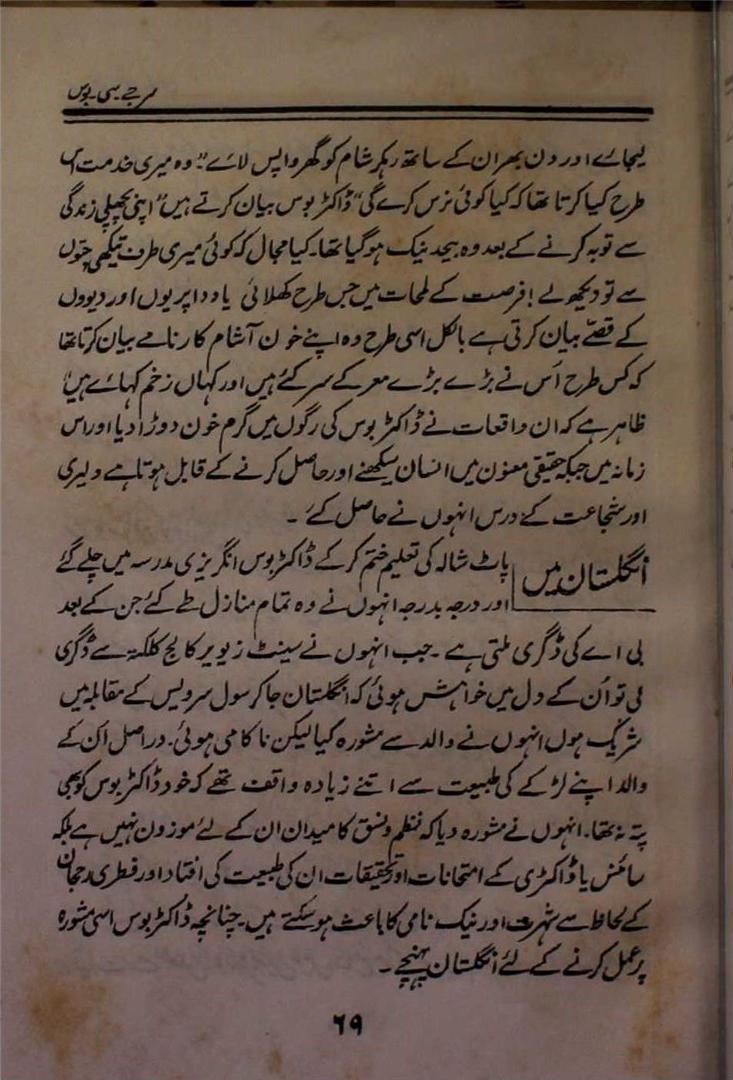 سر جے۔ سی۔ بوس
لیجائے اور دن بھر ان کے ساتھ رہکر شام کو گھر واپس لائے"۔ وہ میری خدمت اس
طرح کیا کرتا تھا کہ کیا کوئی نرس کرے گی" ڈاکٹر بوس بیان کرتے ہیں" اپنی پچھلی زندگی
سے توبہ کرنے کے بعد وہ بیحد نیک ہوگیا تھا۔ کیا مجال کہ کوئی میری طرف تیکھی چتوں
سے تو دیکھ لے! فرصت کے لمحات میں جس طرح کھلائی یا دوا پریوں اور دیووں
کے قصے بیان کرتی ہے بالکل اسی طرح وہ اپنے خون آشام کارنامے بیان کرتا تھا
کہ کس طرح اُس نے بڑے بڑے معرکے سر کئے ہیں اور کہاں زخم کھائے ہیں"
ظاہر ہے کہ ان واقعات نے ڈاکٹر بوس کی رگوں میں گرم خون دوڑا دیا اور اس
زمانہ میں جبکہ حقیقی معنوں میں انسان سیکھنے اور حاصل کرنے کے قابل ہوتا ہے دلیری
اور شجاعت کے درس انہوں نے حاصل کئے ۔
انگلستان میں
پاٹ شالہ کی تعلیم ختم کر کے ڈاکٹر بوس انگریزی مدرسہ میں چلے گئے
اور درجہ بدرجہ انہوں نے وہ تمام منازل طے کئے جن کے بعد
بی اے کی ڈگری ملتی ہے ۔ جب انہوں نے سینٹ زیویر کالج کلکتہ سے ڈگری
لی تو اُن کے دل میں خواہش ہوئی کہ انگلستان جا کر سول سرویس کے مقابلہ میں
شریک ہوں انہوں نے والد سے مشورہ کیا لیکن ناکامی ہوئی۔ دراصل اُن کے
والد اپنے لڑکے کی طبیعت سے اتنے زیادہ واقف تھے کہ خود ڈاکٹر بوس کو بھی
پتہ نہ تھا۔ انہوں نے مشورہ دیا کہ نظم و نسق کا میدان ان کے لئے موزون نہیں ہے بلکہ
سائنس یا ڈاکٹری کے امتحانات اور تحقیقات ان کی طبیعت کی افتاد اور فطری رجحان
کے لحاظ سے شہرت اور نیک نامی کا باعث ہوسکتے ہیں۔ چنانچہ ڈاکٹر بوس اسی مشورہ
پر عمل کرنے کے لئے انگلستان پہنچے ۔
۶۹